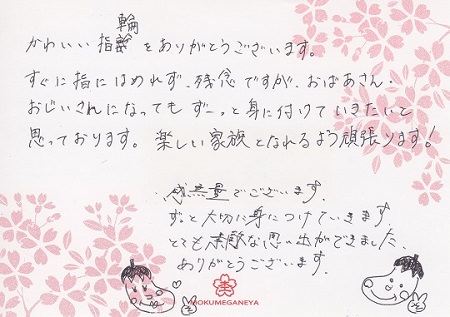 かわいい指輪をありがとうございます。
すぐに指にはめれず、残念ですが、おばあさん・
おじいさんになってもずーっと身に付けていきたいと
思っております。楽しい家族となれるよう頑張ります!
感無量でございます。
ずっと大切に身につけていきます
とても素敵な思い出ができました。
ありがとうございます。
MOKUMEGANEYA